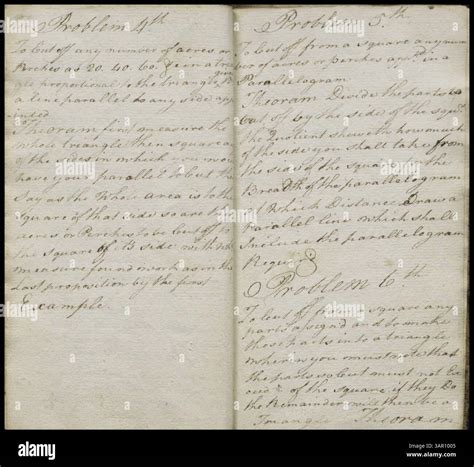 Problem 4th
To Cut off any number of acres or
Perches as 20. 40. 60. & in a trian
gle proportional to the triangle given
to a line parallel to any side app
ointed
Theoram first measure the
whole triangle then square
of the sides in which you would
have your parallel cut
Say as the Whole Area is to the
square of that side so are the
acres or Perches to be Cut off to
the Square of side
measure found work as in the
last proposition by the first
Example
Problem 5.th
To Cut off from a square any num
ber of acres or perches appd. in a
Parallelogram
Theoram Divide the parts to
Cut off by the side of the squr.
the Quotient sheweth how much
of the side you shall take from
the side of the square for the
Breadth of the parallelogram
of Which Distance Draw a
Parallel line Which shall
Include the parallelogram
Requird
Problem 6.th
To Cut off from a square any
parts assignd and to make
those parts into a triangle
Wherein you must note that
the parts so Cut must not Ex
ceed 1/2 of the square if they Do
the Remainder will then be a
Triangle Theoram
alamy
Image ID: 3AR1005
www.alamy.com